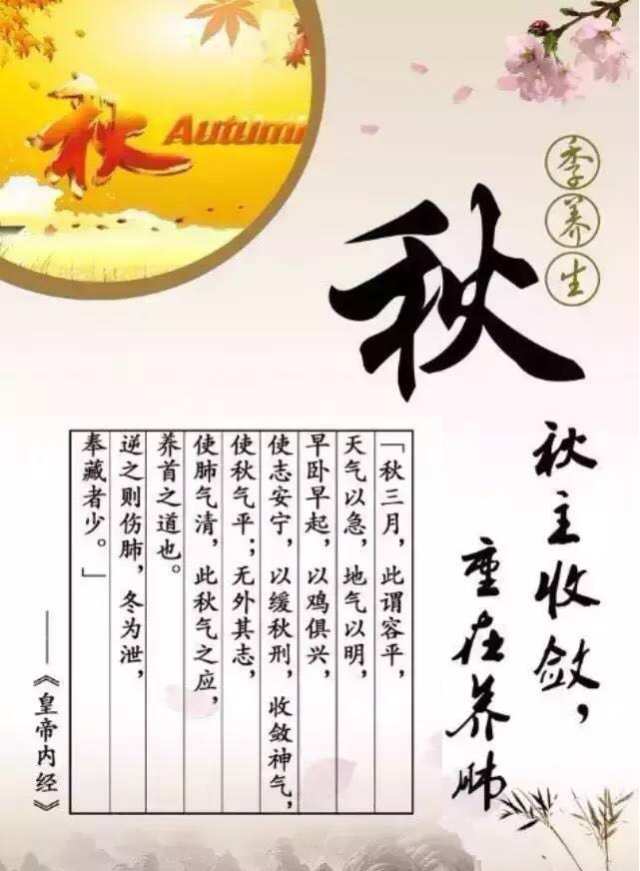 秋 Autum
季养生
秋
秋主收敛，
重在养肺
「秋三月，此谓容平，
天气以急，地气以明，
早卧早起，以鸡俱兴，
使志安宁，以缓秋刑，收敛神气，
使秋气平；无外其志，
使肺气清，此秋气之应，
养首之道也。
逆之则伤肺，冬为泄，
奉藏者少。」
——《皇帝内经》